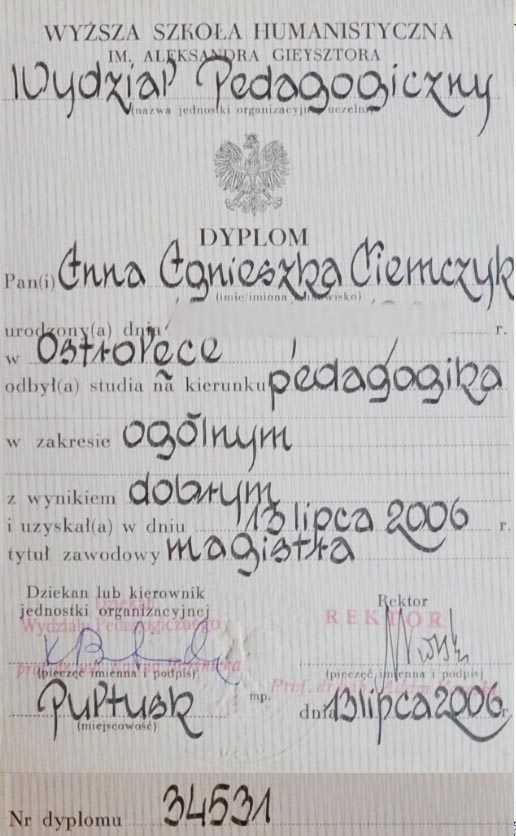 WYŻSZA SZKOŁA HUMANISTYCZNA
IM. ALEKSANDRA GIEYSZTORA
Wydział Pedagogiczny
(nazwa jednostki organizacyjnej uczelni)
DYPLOM
Pan(i) Anna Agnieszka Niemczyk
(imię/imiona i nazwisko)
urodzony(a) dnia r.
w Ostrołęce
odbył(a) studia na kierunku pedagogika
w zakresie ogólnym
z wynikiem dobrym
i uzyskał(a) w dniu 13 lipca 2006 r.
tytuł zawodowy magistra
Dziekan lub kierownik
jednostki organizacyjnej
Wydziału Pedagogicznego
(pieczęć imienna i podpis)
Rektor
REKTOR
(pieczęć imienna i podpis)
Prof. dr hab. Adam
Pułtusk
(miejscowość)
mp.
dnia 13 lipca 2006 r.
Nr dyplomu 34531